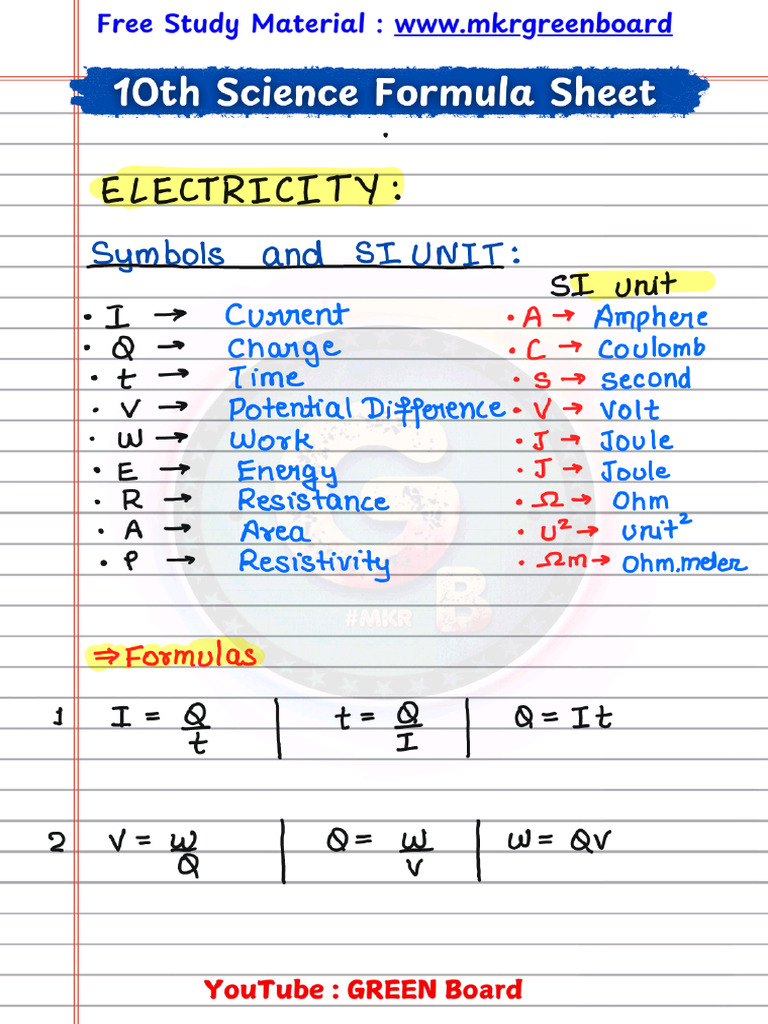 Free Study Material : www.mkrgreenboard
10th Science Formula Sheet
ELECTRICITY:
Symbols and SI UNIT:
SI unit
• I → Current • A → Amphere
• Q → Charge • C → Coulomb
• t → Time • s → second
• V → Potential Difference • V → Volt
• W → Work • J → Joule
• E → Energy • J → Joule
• R → Resistance • Ω → Ohm
• A → Area • u² → unit²
• P → Resistivity • Ωm → Ohm.meter
G
B
#MKR
⇒ Formulas
1 I = Q/t | t = Q/I | Q = It
2 V = W/Q | Q = W/V | W = QV
YouTube : GREEN Board